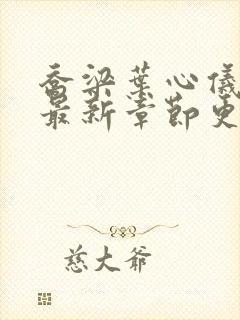 乔梁叶心仪
最新章节更
慈大爷